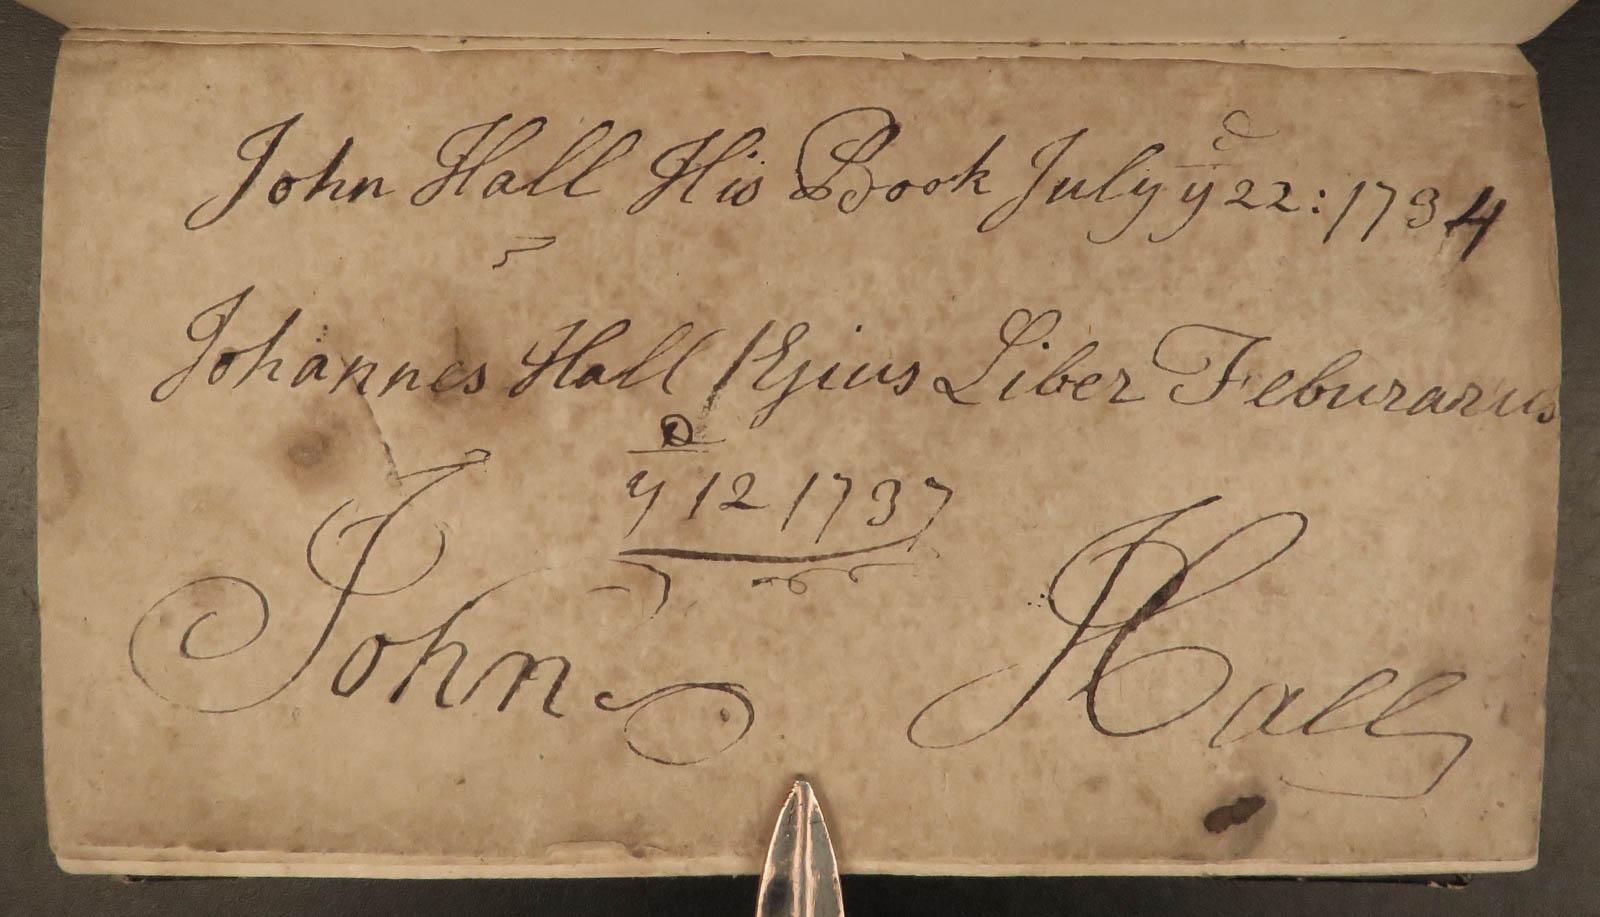 John Hall His Book July yᵉ 22: 1734
Johannes Hall / Ejius Liber Feburarius
yᵉ 12 1737
John Hall